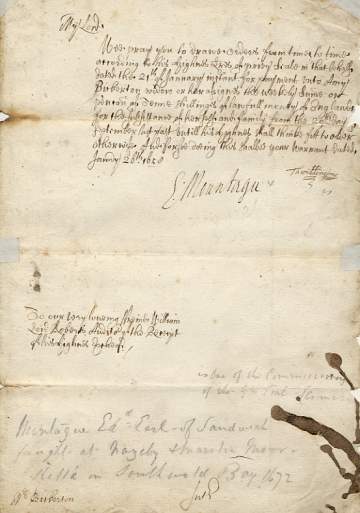 My Lord.
Wee pray you to drawe orders from time to time
according to his Highnes Lres of privy Seale in that behalfe
dated the 21th of January instant for payment unto Amy
Bibberton widow or her assignes the weekly Sume or
pencon of Tenne shillings of lawfull money of England
for the subsistance of herself and family from the day
September last past until his Highnes shall thinke fitt to order
otherwise And for soe doing this shalbe your warrant Dated
January 28th
E: Mountagu
To our very loveing freind William
Lord Roberts Auditor of the Receipt
of his Highnes Excheqr
one of the Commissioners
of the
Montague Edd Earl of Sandwich
fought at Nazeby & Marston Moor
Killed in Southwold Bay 1672